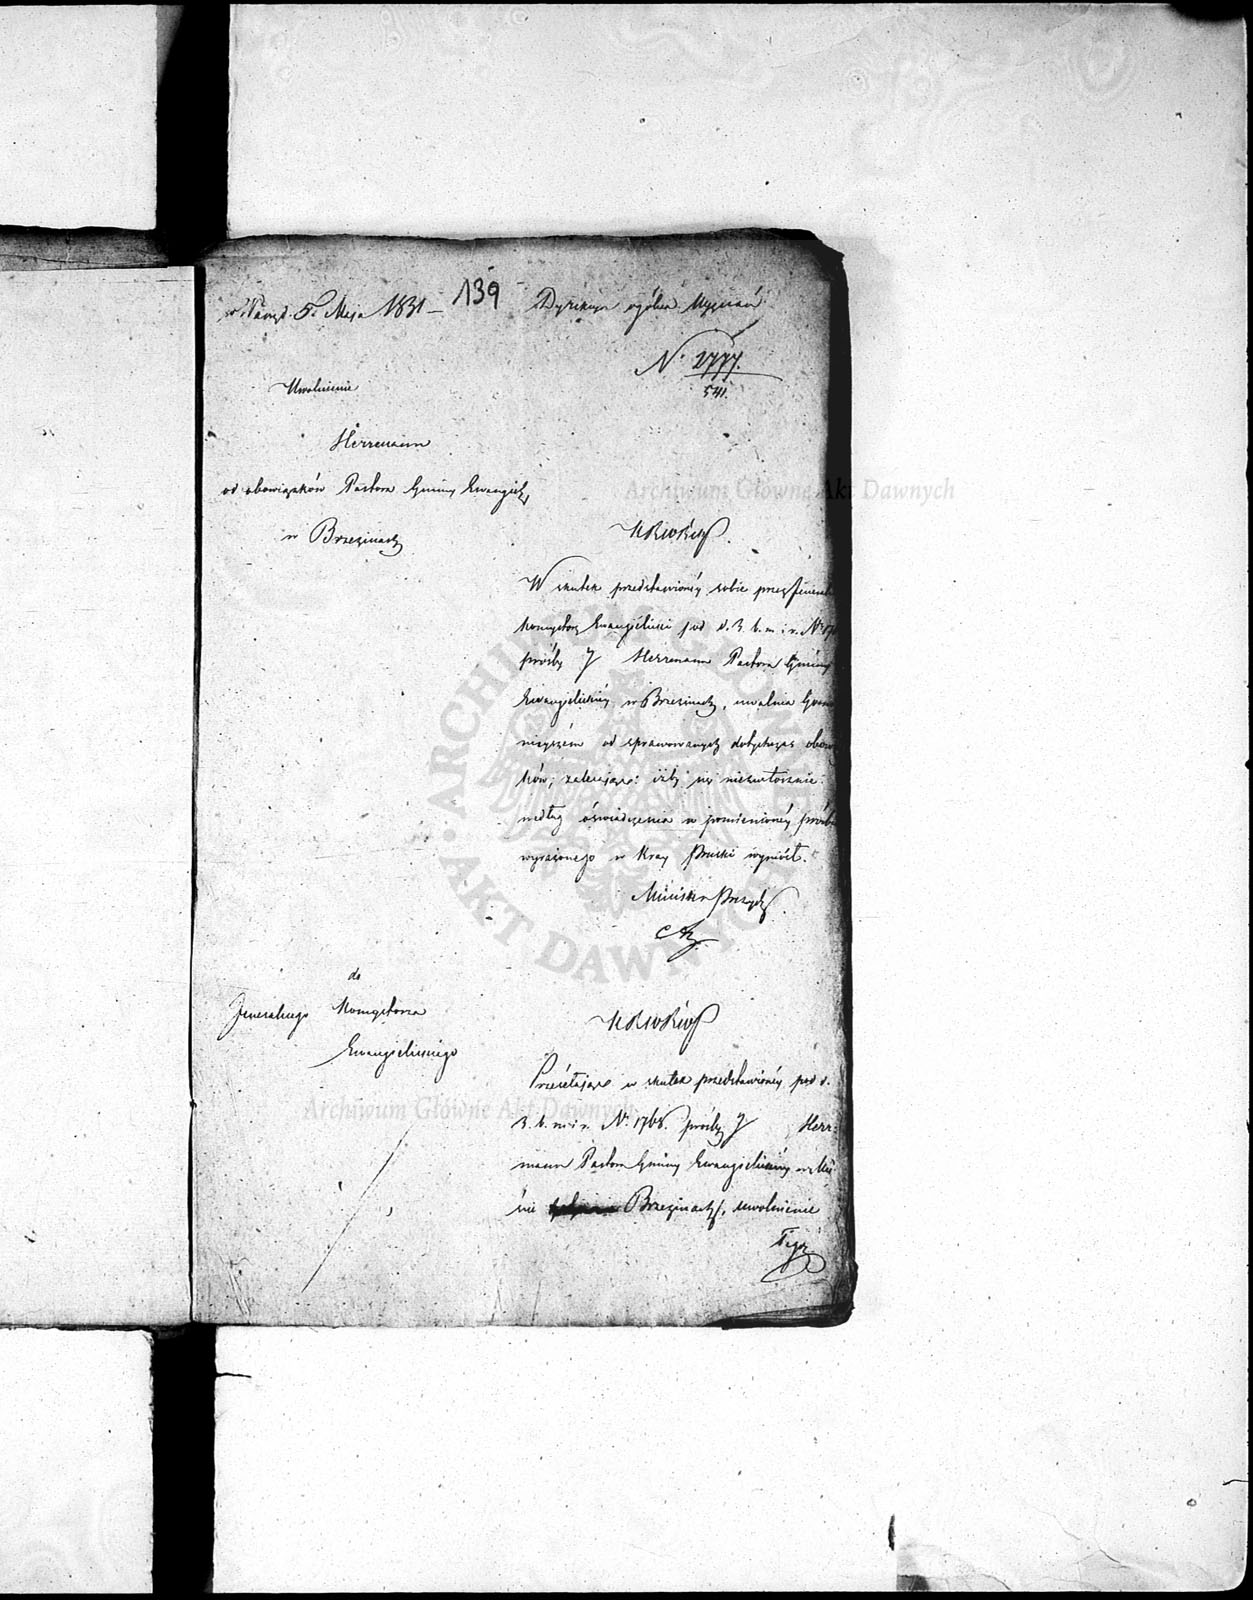 w Warsz. 5. Maja 1831 –
139
Dyrekcya ogólna Wyznań
N. 2777.
541.
Uwolnienie
Herrmann
od obowiązków Pastora Gminy Ewangiel.
w Brzezinach
Archiwum Główne Akt Dawnych
KRWRiOP.
W skutek przedstawionéy sobie przez Jeneral
Konsystorz Ewangielicki pod d. 3. b. m. i r. No 17
prośby J Herrmann Pastora Gminy
Ewangielickiéy w Brzezinach, uwalnia
ninieyszém od sprawowanych dotychczas obow
ków; zalecając: iżby się niezwłocznie
według oświadczenia w pomienionéy prośbie
wyrażonego w Kray Pruski wyniósł.
Minister Prezyd.
ARCHIWUM GŁÓWNE AKT DAWNYCH
do
Jeneralnego Konsystorza
Ewangielickiego
KRWRiOP
Przesyłając w skutek przedstawionéy pod d.
3. b. m. i r. No 1768. prośby J Herr-
mann Pastora Gminy Ewangielickiéy w Mie-
ście Brzezinach, uwolnienie
Tegoż
Archiwum Główne Akt Dawnych